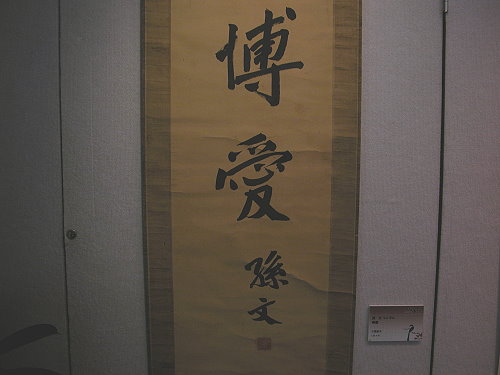 博
愛
孫
文